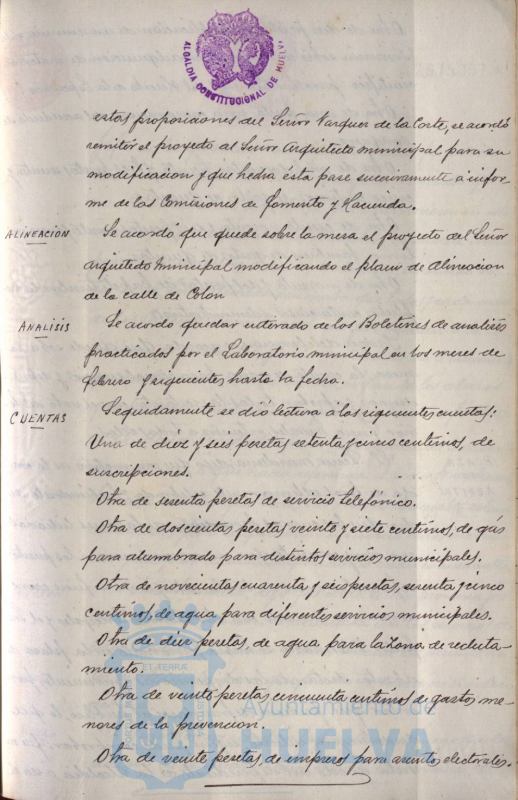 ALCALDÍA CONSTITUCIONAL DE HUELVA
estas proposiciones del Señor Vazquez de la Corte, se acordó
remitir el proyecto al Señor Arquitecto municipal para su
modificacion y que hecha ésta pase sucesivamente á infor-
me de las Comisiones de Fomento y Hacienda.
ALINEACION
Se acordó que quede sobre la mesa el proyecto del Señor
arquitecto Municipal modificando el plano de Alineacion
de la calle de Colon
ANALISIS
Se acordo quedar enterado de los Boletines de analisis
practicados por el Laboratorio municipal en los meses de
febrero y siguientes hasta la fecha.
CUENTAS
Seguidamente se dió lectura á las siguientes cuentas:
Una de diez y seis pesetas setenta y cinco centimos, de
suscripciones.
Otra de sesenta pesetas de servicio telefónico.
Otra de doscientas pesetas veinte y siete centimos, de gás
para alumbrado para distintos servicios municipales.
Otra de novecientas cuarenta y seis pesetas, setenta y cinco
centimos, de agua para diferentes servicios municipales.
Otra de diez pesetas, de agua para la Zona de recluta-
miento.
Otra de veinte pesetas cincuenta centimos de gastos me-
nores de la prevencion.
Otra de veinte pesetas, de impresos para asuntos electorales.
ET TERRÆ
Ayuntamiento de
HUELVA